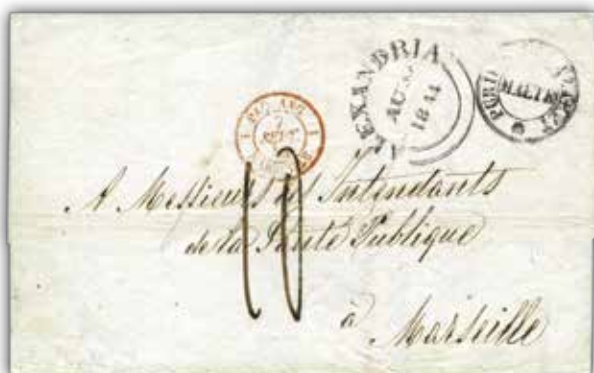 ALEXANDRIA
AU
1844
MALTA
7
A Messieurs les Intendants
de la Santé Publique
à Marseille